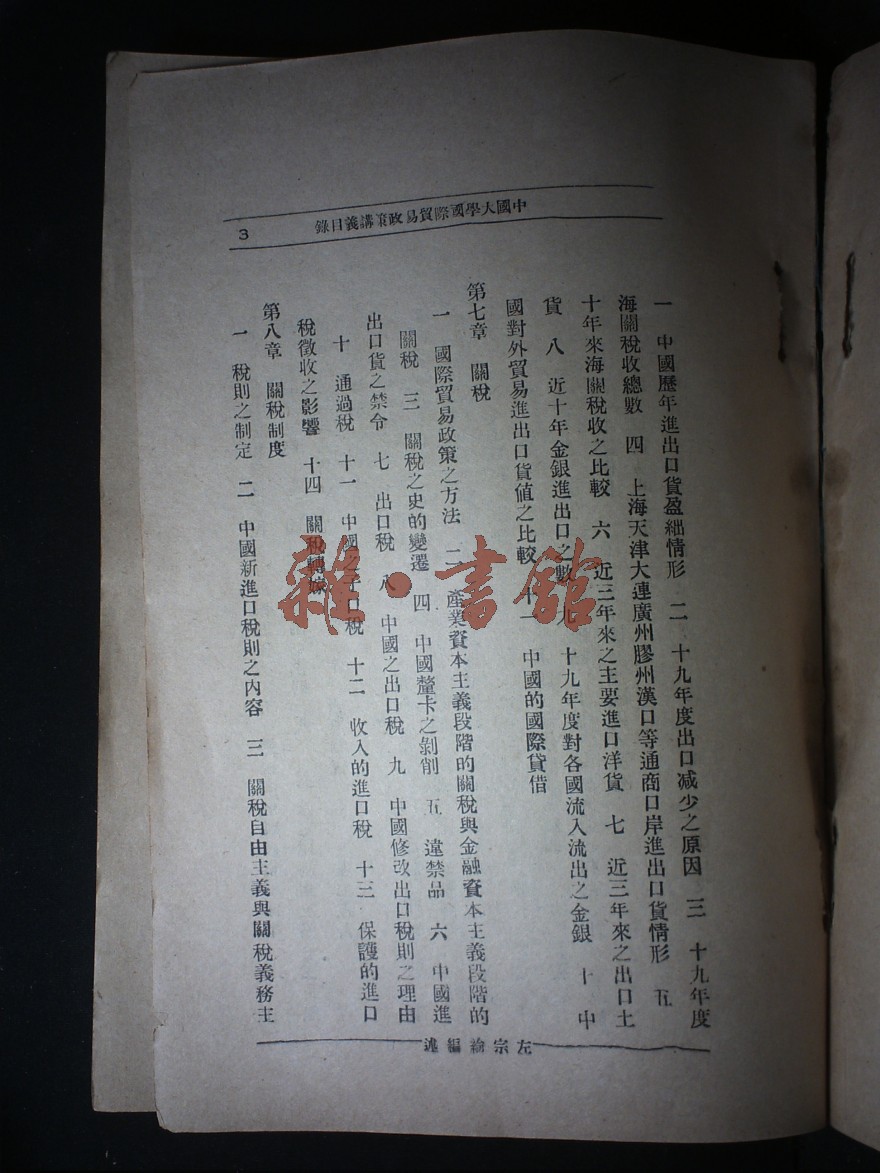 中國大學國際貿易政策講義目錄
3
一　中國歷年進出口貨盈絀情形　二　十九年度出口減少之原因　三　十九年度
海關稅收總數　四　上海天津大連廣州膠州漢口等通商口岸進出口貨情形　五
十年來海關稅收之比較　六　近三年來之主要進口洋貨　七　近三年來之出口土
貨　八　近十年金銀進出口之數　九　十九年度對各國流入流出之金銀　十　中
國對外貿易進出口貨值之比較　十一　中國的國際貸借
第七章　關稅
一　國際貿易政策之方法　二　產業資本主義段階的關稅與金融資本主義段階的
關稅　三　關稅之史的變遷　四　中國釐卡之剝削　五　違禁品　六　中國進
出口貨之禁令　七　出口稅　八　中國之出口稅　九　中國修改出口稅則之理由
十　通過稅　十一　中國之子口稅　十二　收入的進口稅　十三　保護的進口
稅徵收之影響　十四　關稅轉嫁
第八章　關稅制度
一　稅則之制定　二　中國新進口稅則之內容　三　關稅自由主義與關稅義務主
左宗綸編述
雜·書館